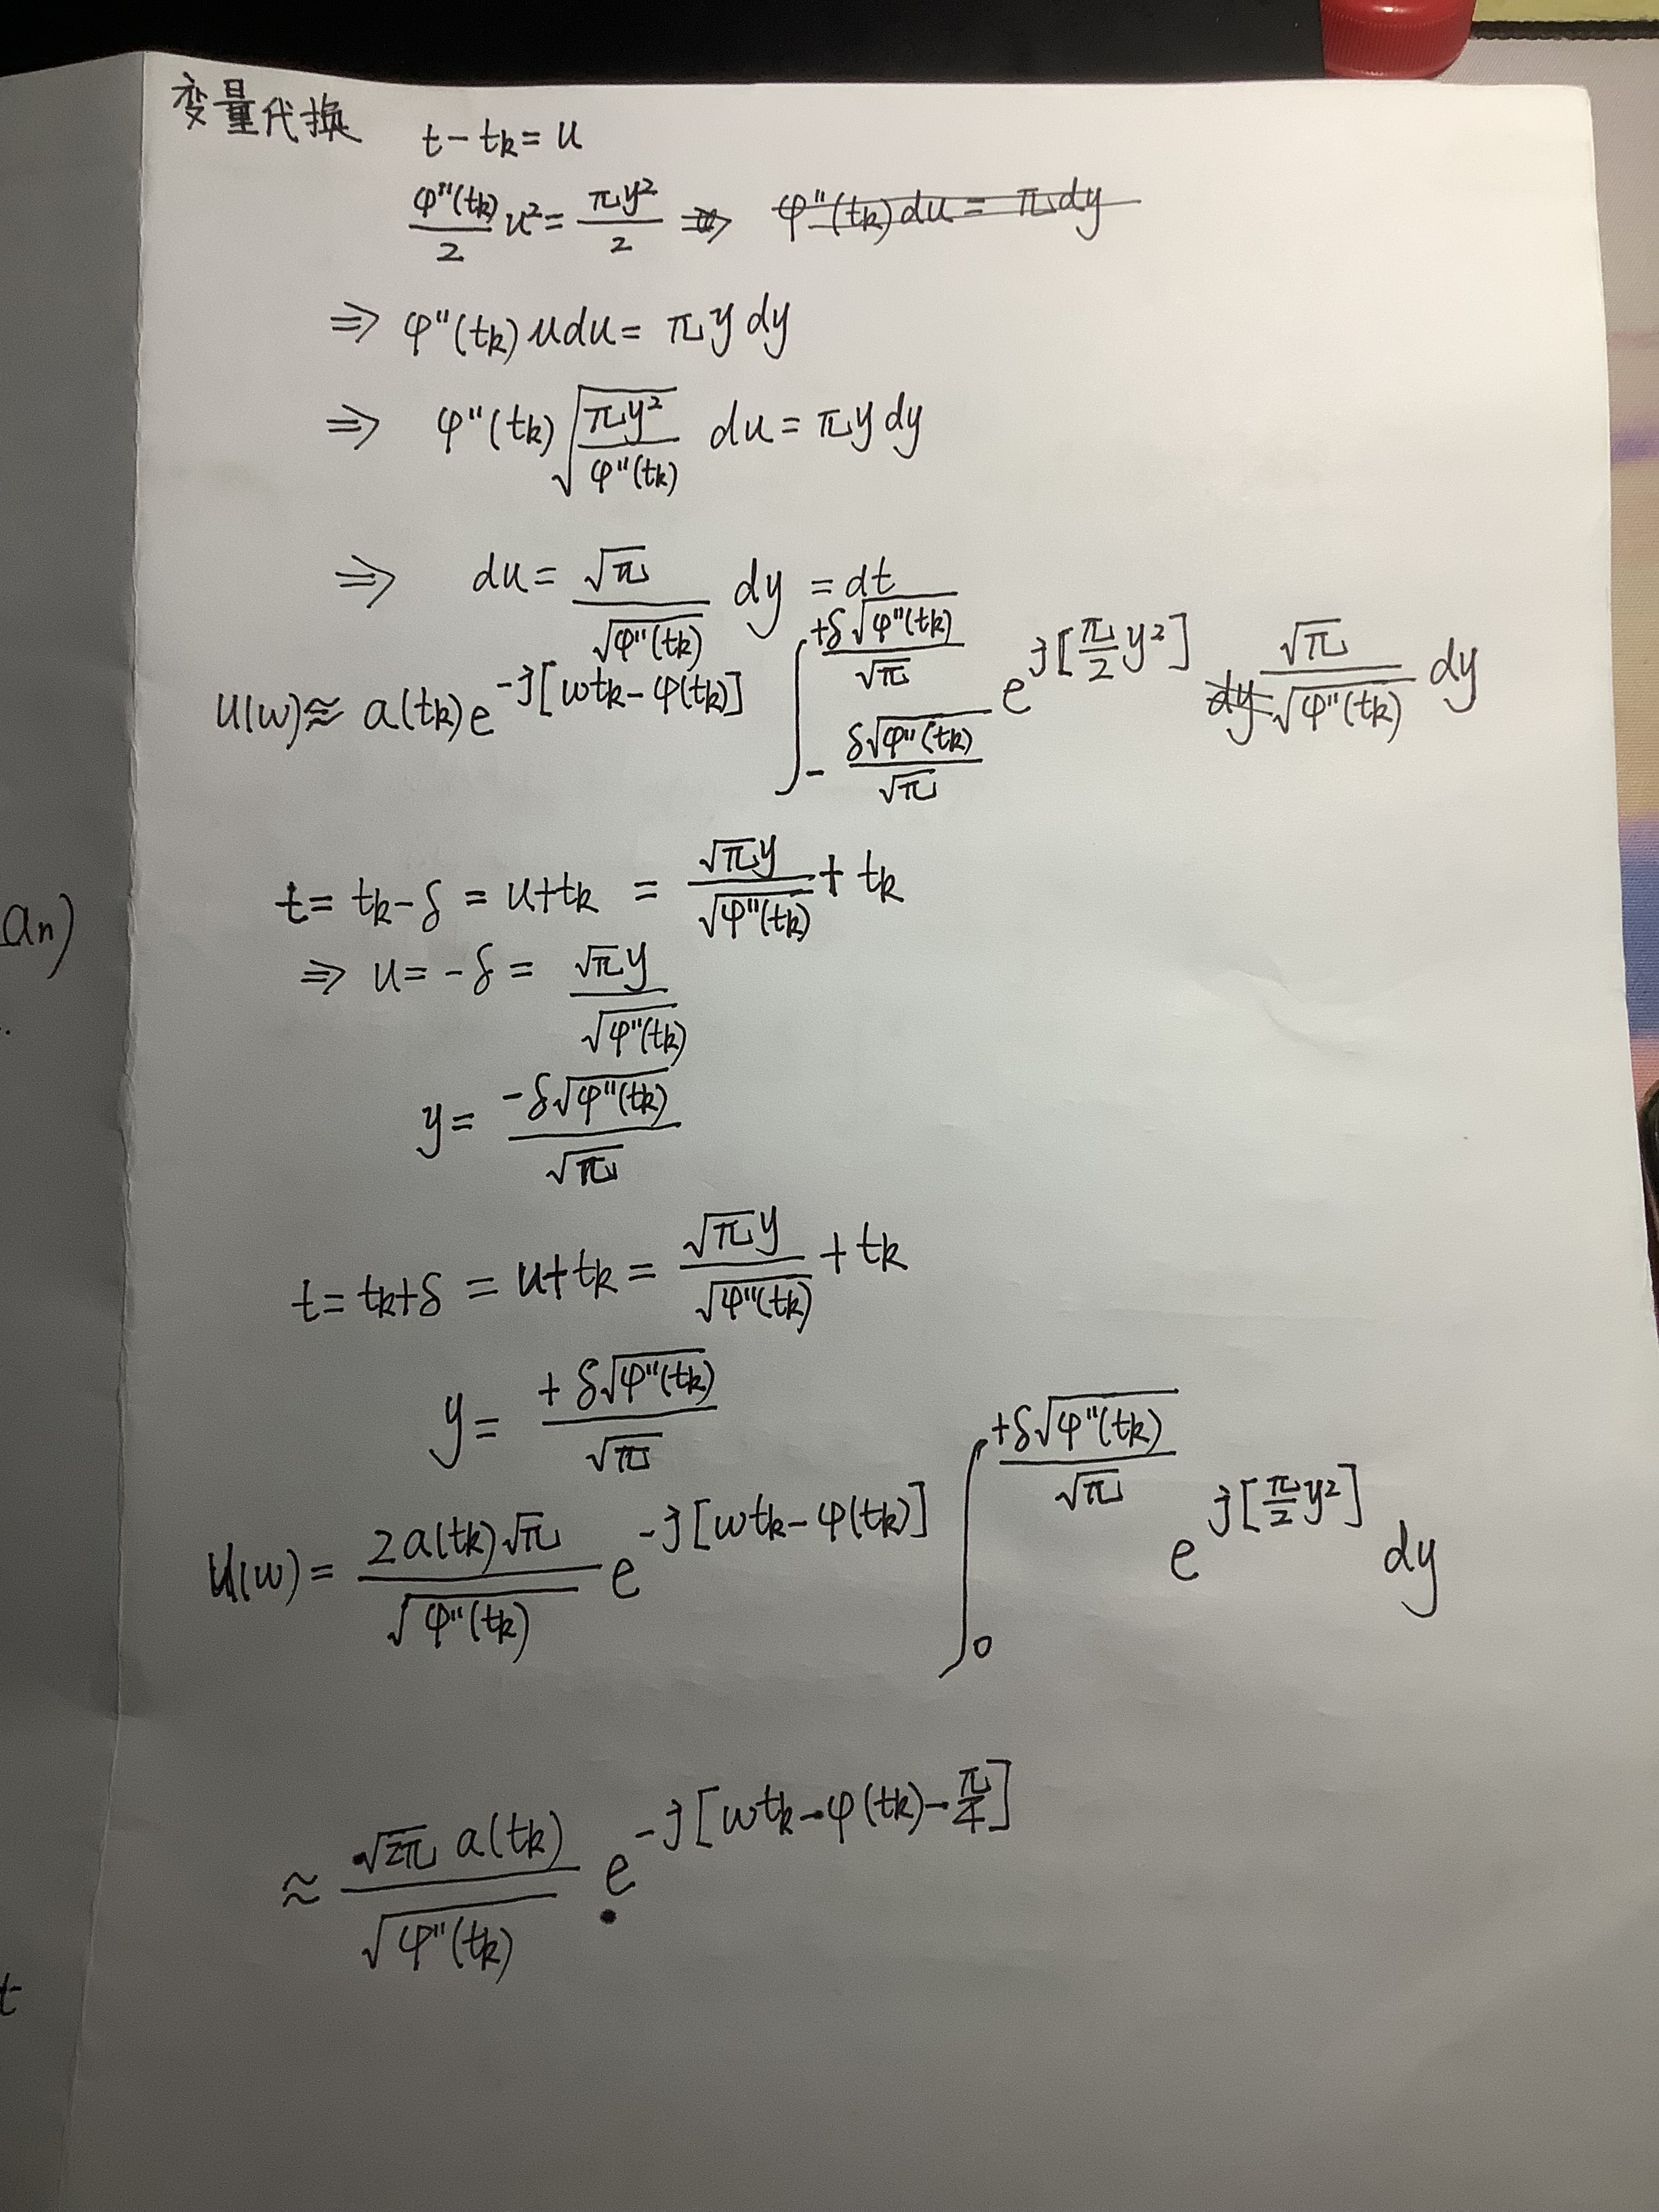 变量代换 t - tk = u
φ''(tk)/2 u² = πy²/2 ⇒ φ''(tk) du = π dy
⇒ φ''(tk) u du = π y dy
⇒ φ''(tk) √(πy²/φ''(tk)) du = π y dy
⇒ du = √π/√φ''(tk) dy = dt
U(w) ≈ a(tk) e^{-j[wtk - φ(tk)]} ∫_{-δ√φ''(tk)/√π}^{+δ√φ''(tk)/√π} e^{j[π/2 y²]} dy √π/√φ''(tk) dy
t = tk - δ = u + tk = √π y/√φ''(tk) + tk
an)
⇒ u = -δ = √π y/√φ''(tk)
.
y = -δ√φ''(tk)/√π
t = tk + δ = u + tk = √π y/√φ''(tk) + tk
y = +δ√φ''(tk)/√π
U(w) = 2a(tk)√π/√φ''(tk) e^{-j[wtk - φ(tk)]} ∫_0^{+δ√φ''(tk)/√π} e^{j[π/2 y²]} dy
≈ √2π a(tk)/√φ''(tk) e^{-j[wtk - φ(tk) - π/4]}
t